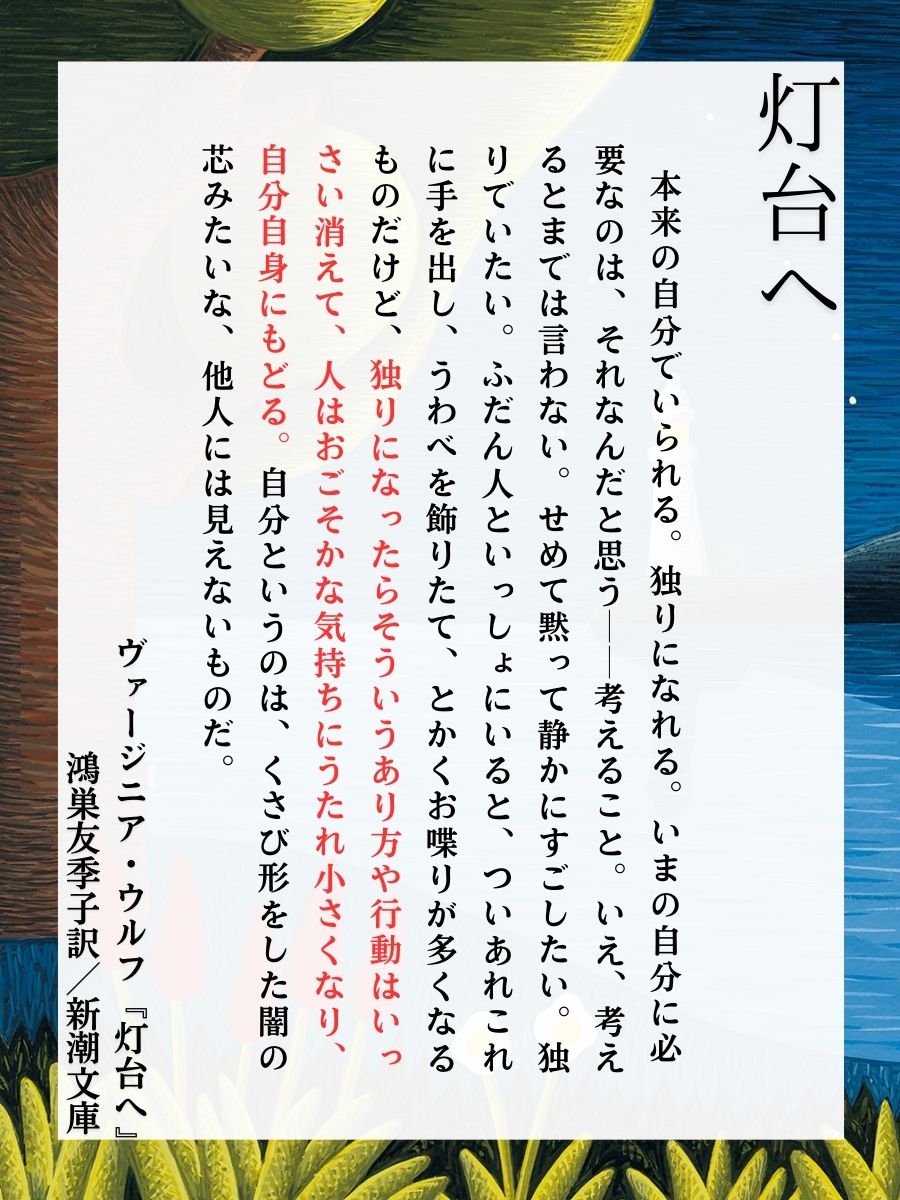 灯台へ
本来の自分でいられる。独りになれる。いまの自分に必
要なのは、それなんだと思う――考えること。いえ、考え
るとまでは言わない。せめて黙って静かにすごしたい。独
りでいたい。ふだん人といっしょにいると、ついあれこれ
に手を出し、うわべを飾りたて、とかくお喋りが多くなる
ものだけど、独りになったらそういうあり方や行動はいっ
さい消えて、人はおごそかな気持ちにうたれ小さくなり、
自分自身にもどる。自分というのは、くさび形をした闇の
芯みたいな、他人には見えないものだ。
ヴァージニア・ウルフ『灯台へ』
鴻巣友季子訳／新潮文庫